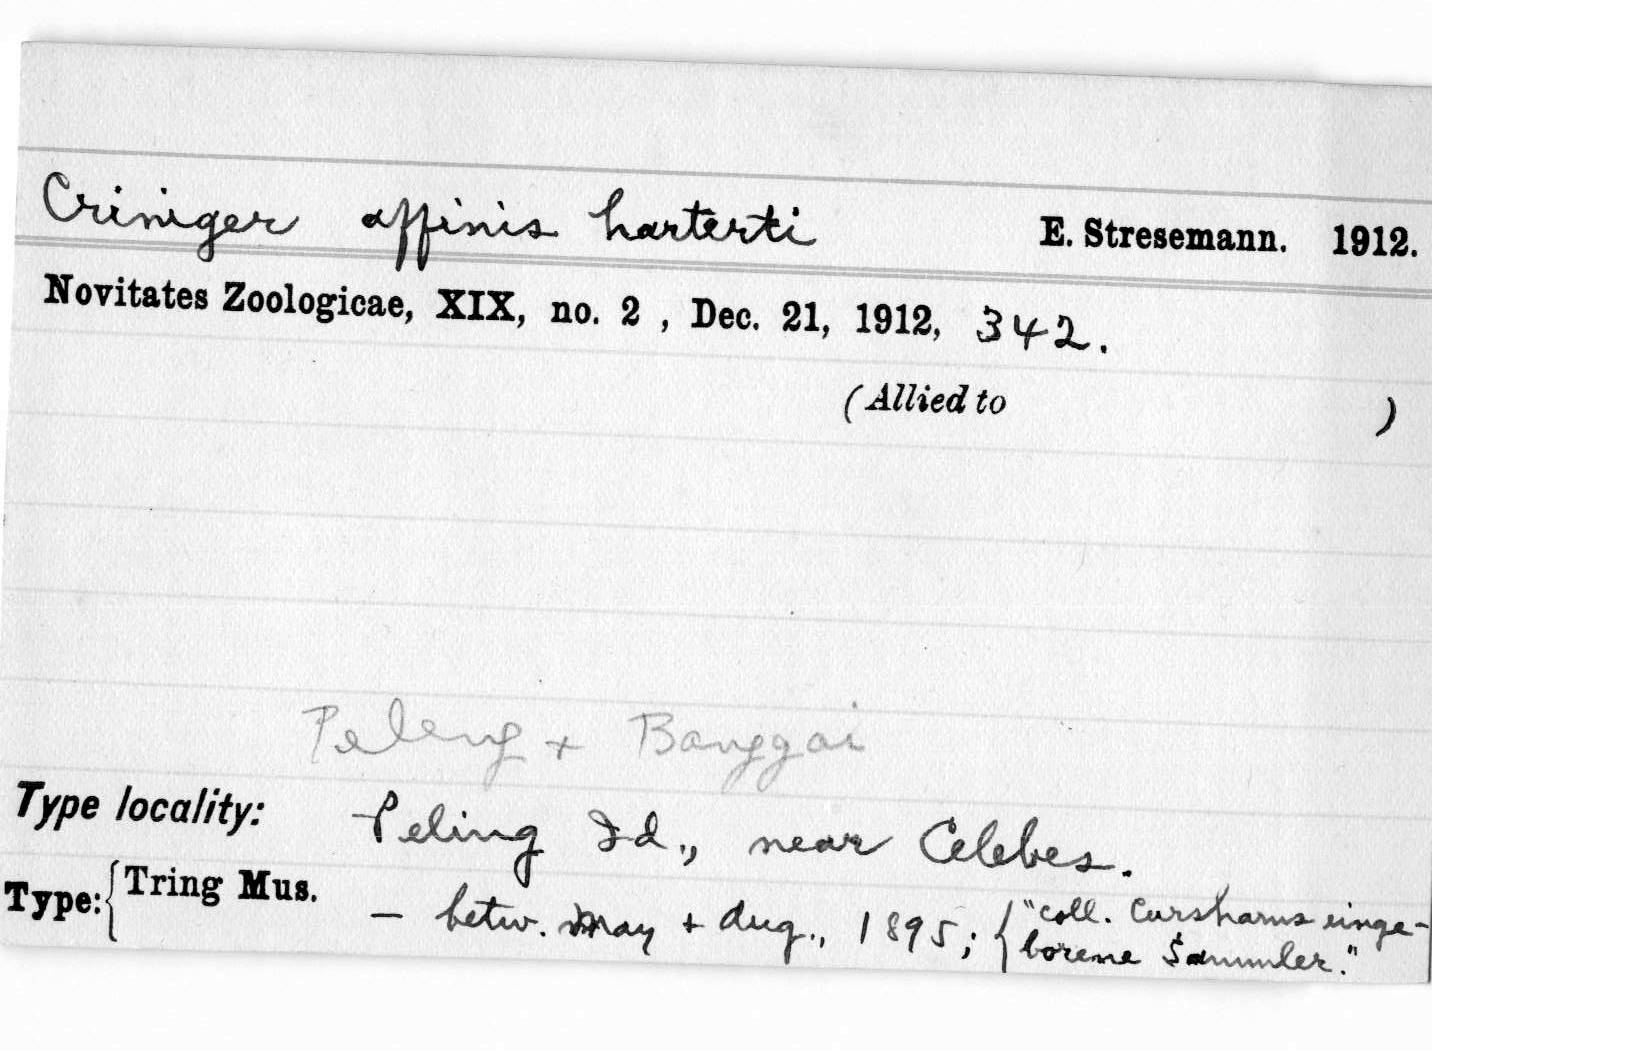 Criniger affinis harterti E. Stresemann. 1912.
Novitates Zoologicae, XIX, no. 2 , Dec. 21, 1912, 342.
(Allied to )
Peleng + Banggai
Type locality: Peling Id., near Celebes.
Type: { Tring Mus. — betw. May + Aug., 1895; { "coll. Curshams einge-
borene Sammler."